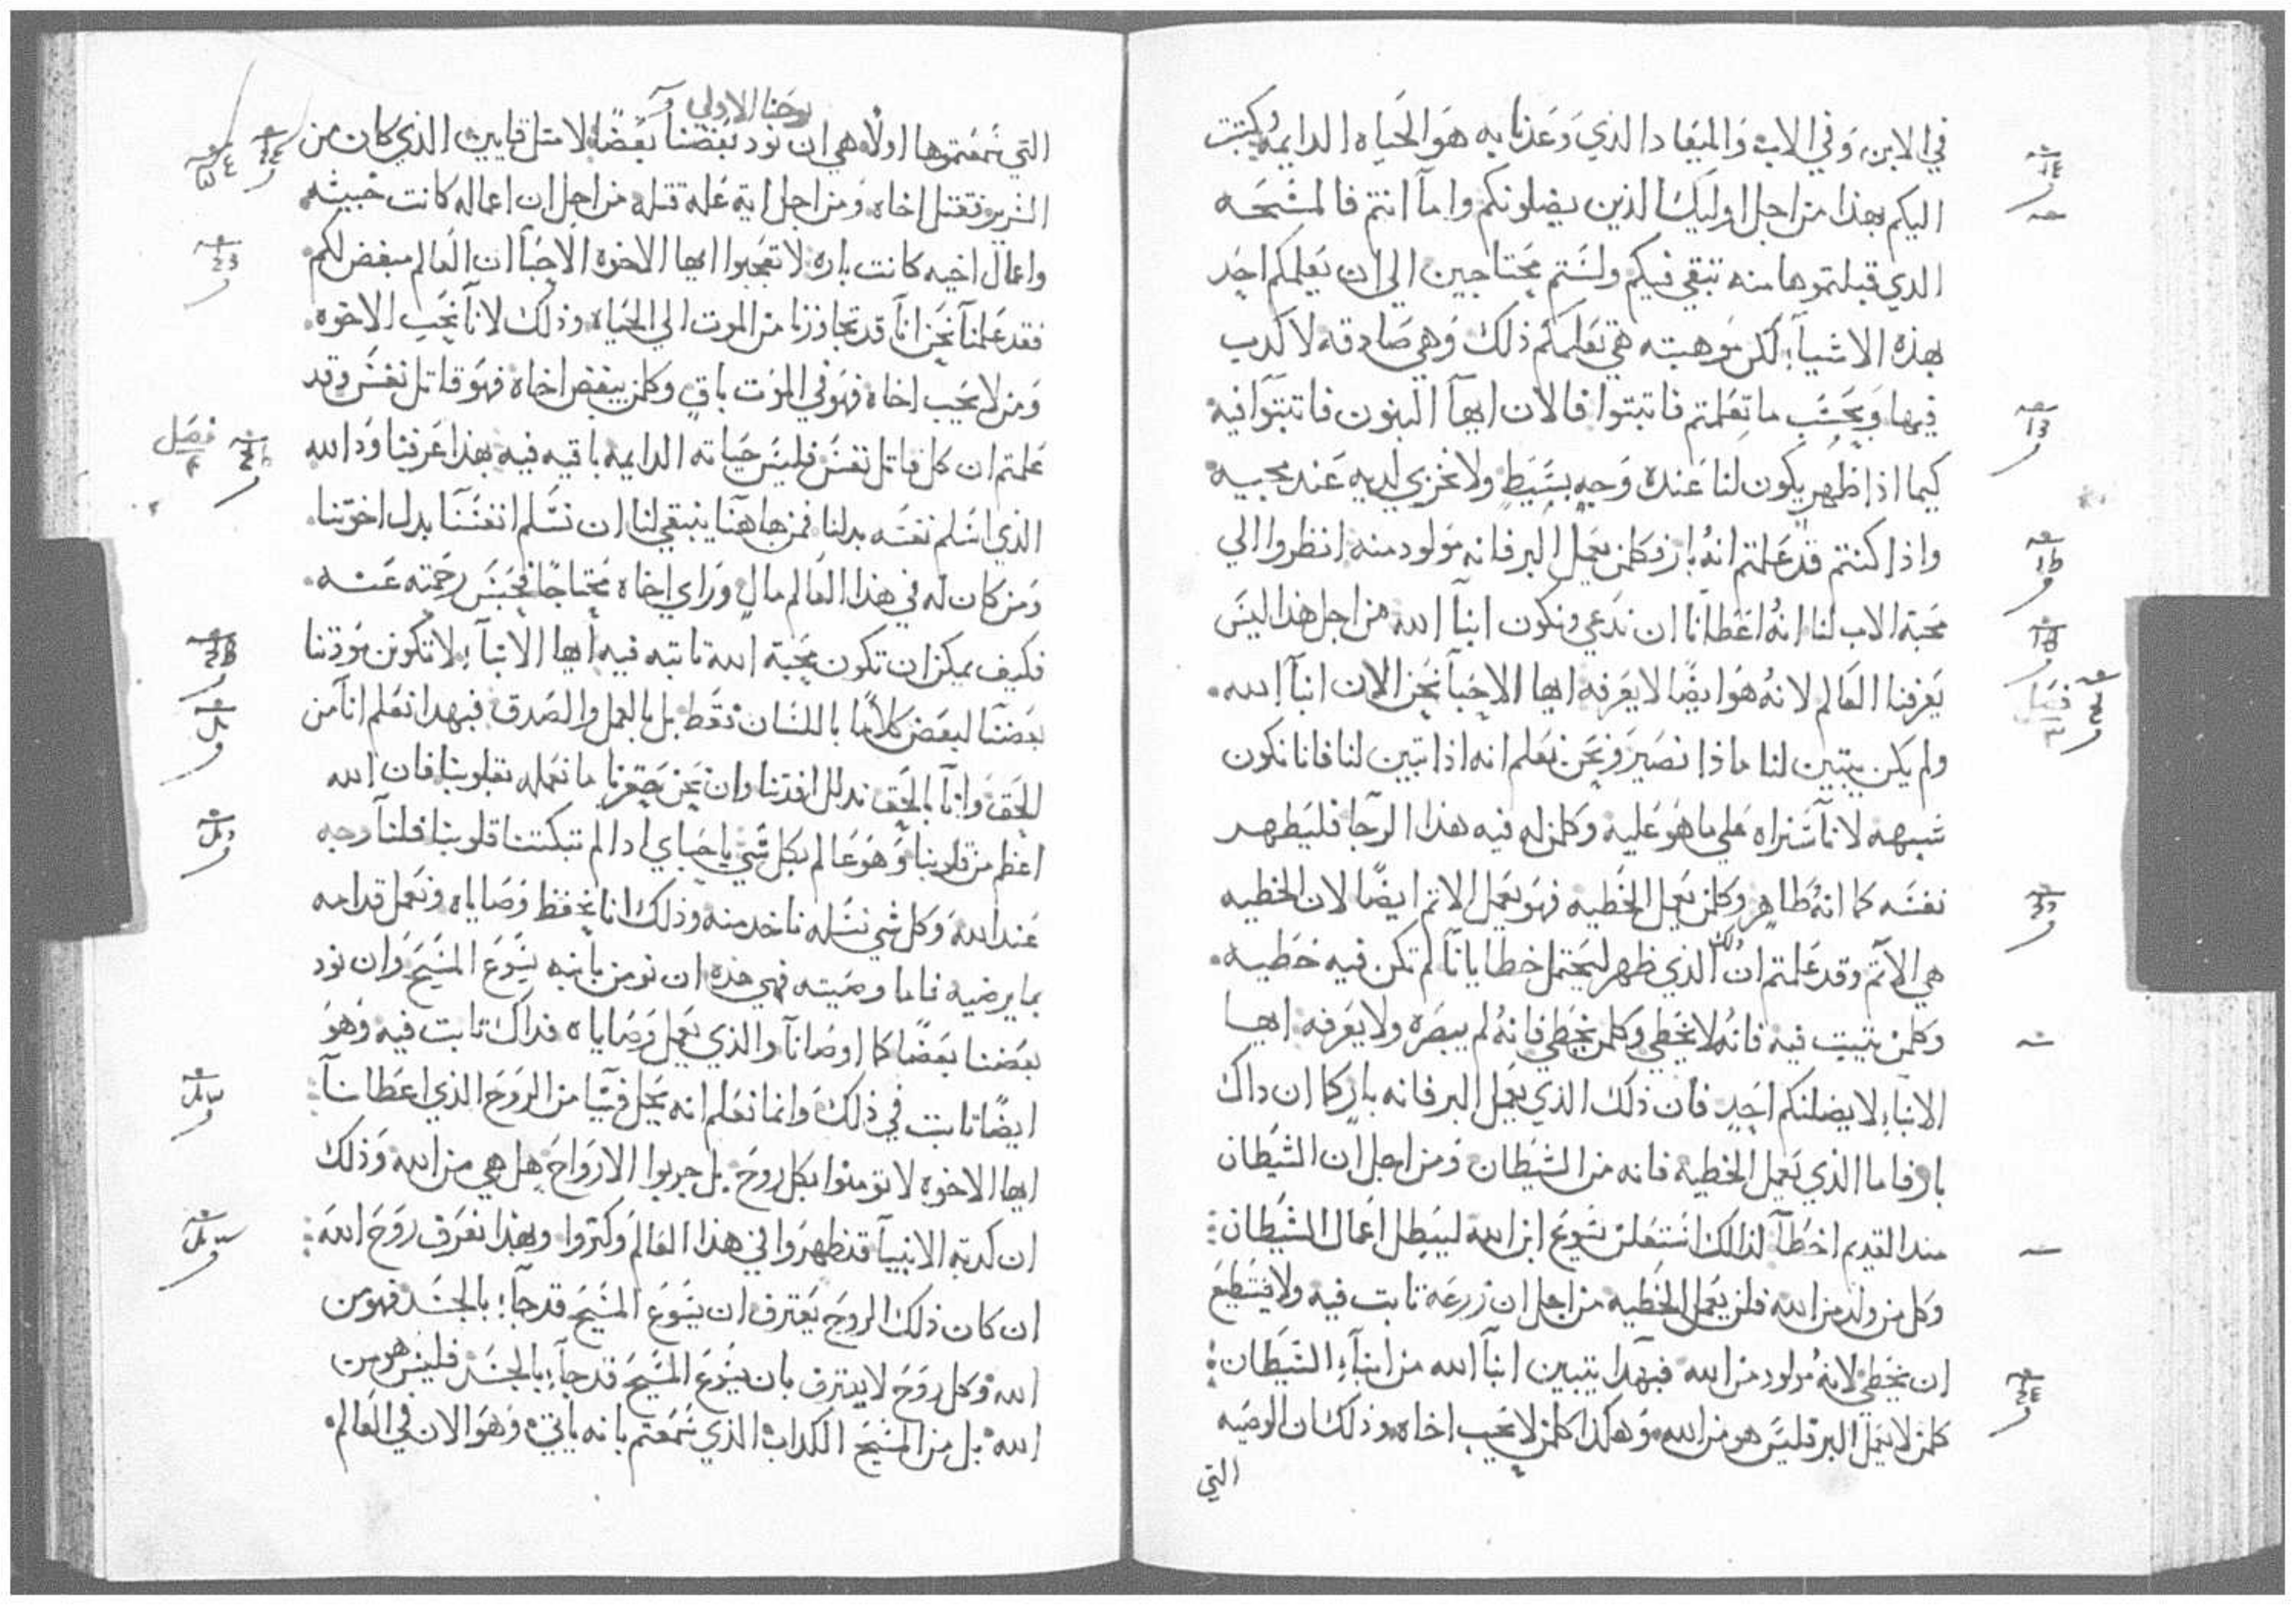 في الابن وفي الاب والميعاد الذي وعدنا به هو الحياه الدايمه كتبت
اليكم بهذا من اجل اوليك الذين يضلونكم واما انتم فالمسحه
الدي قبلتموها منه تبقي فيكم ولستم محتاجين الي ان يعلمكم احد
بهذه الاشيا لكن موهبته هي تعلمكم ذلك وهي صادقه لا كدب
فيها وبحسب ما تعلمتم فاتبتوا فالان ايها البنون فاتبتوا فيه
كيما اذا ظهر يكون لنا عنده وجه بسيط ولا نخزي لديه عند مجييه
واذا كنتم قد علمتم انه بار فكلمن يعمل البر فانه مولود منه انظروا الي
محبة الاب لنا انه اعطانا ان ندعي ونكون ابنا الله من اجل هذا ليس
يعرفنا العالم لانه هو ايضا لا يعرفه ايها الاحبا نحن الان ابنا الله
ولم يكن يتبين لنا ماذا نصير ونحن نعلم انه اذا تبين لنا فانا نكون
شبهه لانا سنراه علي ما هو عليه وكلمن له فيه هذا الرجا فليطهر
نفسه كما انه طاهر وكلمن يعمل الخطيه فهو يعمل الاتم ايضا لان الخطيه
هي الاتم وقد علمتم ان ذلك الذي ظهر ليحتمل خطايانا لم تكن فيه خطيه
وكلمن يتبت فيه فانه لا يخطي وكلمن يخطي فانه لم يبصره ولا يعرفه ايها
الابنا لا يضلنكم احد فان ذلك الذي يعمل البر فانه بار كما ان داك
بار فاما الذي يعمل الخطيه فانه من الشيطان ومن اجل ان الشيطان
مند القديم اخطا لذلك استعلن يسوع ابن الله ليبطل اعمال الشيطان
وكل من ولد من الله فلن يعمل الخطيه من اجل ان زرعه تابت فيه ولا يستطيع
ان يخطي لانه مولود من الله فبهدا يتبين ابنا الله من ابنا الشيطان
كلمن لا يعمل البر فليس هو من الله وهكذا كلمن لا يحب اخاه وذلك ان الوصيه
التي
يوحنا الاولي
التي سمعتموها اولا هي ان نود بعضنا بعضا لا متل قايين الذي كان من
الشرير فقتل اخاه ومن اجل اية عله قتله من اجل ان اعماله كانت خبيثه
واعمال اخيه كانت باره لا تعجبوا ايها الاخوه الاحبا ان العالم مبغض لكم
فقد علمنا نحن انا قد تجاوزنا من الموت الي الحياه وذلك لانا نحب الاخوه
ومن لا يحب اخاه فهو في الموت باق وكلمن يبغض اخاه فهو قاتل نفس وقد
علمتم ان كل قاتل نفس فليس حياته الدايمه باقيه فيه بهذا عرفنا ود الله
فصل
الذي اسلم نفسه بدلنا فمن هاهنا ينبغي لنا ان نسلم انفسنا بدل اخوتنا
ومن كان له في هذا العالم مال وراي اخاه محتاجا فحبس رحمته عنه
فكيف يمكن ان تكون محبة الله تابته فيه ايها الابنا لا تكونن مودتنا
بعضنا لبعض كلاما باللسان فقط بل بالعمل والصدق فبهدا نعلم انا من
الحق وانا بالحق ندلل افدتنا وان نحن حقرنا ما نعمله بقلوبنا فان الله
اعظم من قلوبنا وهو عالم بكل شي يا احباي ادا لم تبكتنا قلوبنا فلنا وجه
عند الله وكل شي نسله ناخد منه وذلك انا نحفظ وصاياه ونعمل قدامه
بما يرضيه فاما وصيته فهي هذه ان نومن بابنه يسوع المسيح وان نود
بعضنا بعضا كما اوصانا والذي يعمل وصاياه فداك تابت فيه وهو
ايضا تابت في ذلك وانما نعلم انه يحل فينا من الروح الذي اعطانا
ايها الاخوه لا تومنوا بكل روح بل جربوا الارواح هل هي من الله وذلك
ان كدبة الانبيا قد ظهروا في هذا العالم وكتروا وبهذا نعرف روح الله
ان كان ذلك الروح يعترف ان يسوع المسيح قد جا بالجسد فهو من
الله وكل روح لا يعترف بان يسوع المسيح قد جا بالجسد فليس هو من
الله بل من المسيح الكداب الذي سمعتم بانه ياتي وهو الان في العالم